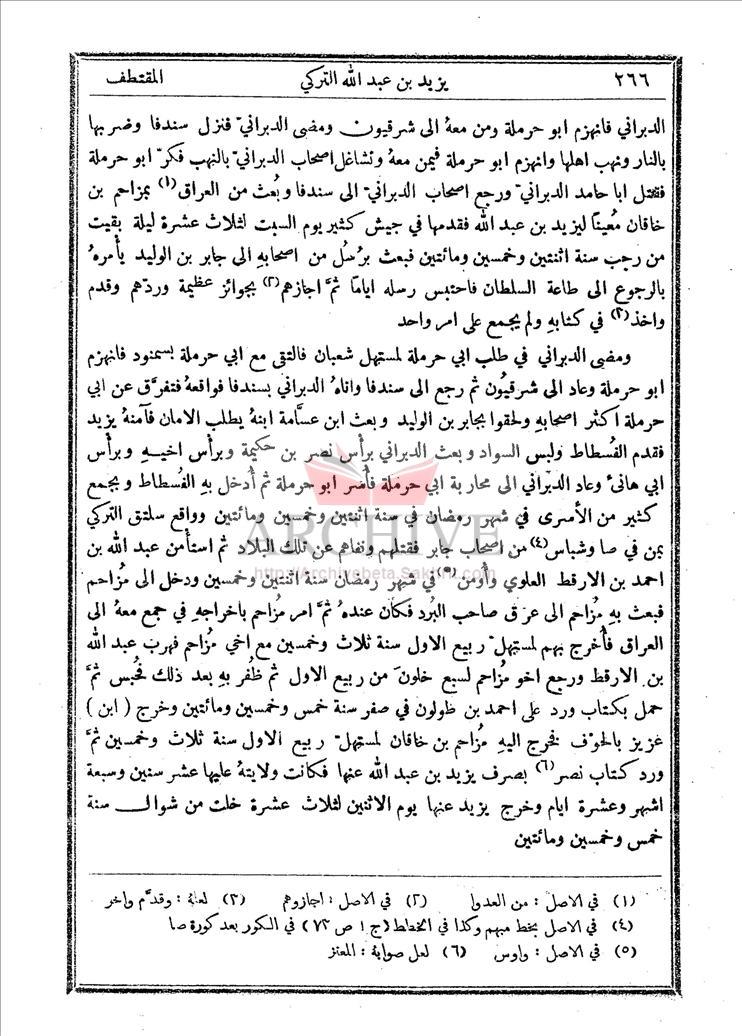 ٢٦٦ يزيد بن عبد الله التركي المقتطف
الدبراني فانهزم ابو حرملة ومن معهُ الى شرقيون ومضى الدبراني فنزل سندفا وضربها
بالنار ونهب اهلها وانهزم ابو حرملة فيمن معهُ وتشاغل اصحاب الدبراني بالنهب فكرّ ابو حرملة
فقتل ابا حامد الدبراني ورجع اصحاب الدبراني الى سندفا وبُعث من العراق(١) بمزاحم بن
خاقان مُعيناً ليزيد بن عبد الله فقدمها في جيش كثير يوم السبت لثلاث عشرة ليلة بقيت
من رجب سنة اثنتين وخمسين ومائتين فبعث برُسُل من اصحابهِ الى جابر بن الوليد يأمرهُ
بالرجوع الى طاعة السلطان فاحتبس رسله اياماً ثمَّ اجازهم(٢) بجوائز عظيمة وردّهم وقدم
واخذ(٣) في كتابهِ ولم يجمع على امر واحد
ومضى الدبراني في طلب ابي حرملة لمستهل شعبان فالتقى مع ابي حرملة بسمنود فانهزم
ابو حرملة وعاد الى شرقيُون ثم رجع الى سندفا واتاهُ الدبراني بسندفا فواقعهُ فتفرَّق عن ابي
حرملة اكثر اصحابهِ ولحقوا بجابر بن الوليد وبعث ابن عسَّامة ابنهُ يطلب الامان فآمنهُ يزيد
فقدم الفُسطاط ولبس السواد وبعث الدبراني برأس نصر بن حكيمة وبرأس اخيهِ وبرأس
ابي هانئ وعاد الدبراني الى محاربة ابي حرملة فأُسر ابو حرملة ثم أُدخل بهِ الفُسطاط وبجمع
كثير من الأسرى في شهر رمضان في سنة اثنتين وخمسين ومائتين وواقع سلتق التركي
بمن في صا وشباس(٤) من اصحاب جابر فقتلهم ونفاهم عن تلك البلاد ثم استأمن عبد الله بن
احمد بن الارقط العلوي وأُومن(٥) في شهر رمضان سنة اثنتين وخمسين ودخل الى مُزاحم
فبعث بهِ مُزاحم الى عرق صاحب البُرد فكان عندهُ ثمَّ امر مُزاحم باخراجهِ في جمع معهُ الى
العراق فأُخرج بهم لمستهلّ ربيع الاول سنة ثلاث وخمسين مع اخي مُزاحم فهرب عبد الله
بن الارقط ورجع اخو مُزاحم لسبع خلونَ من ربيع الاول ثم ظُفر بهِ بعد ذلك فحُبس ثمَّ
حمل بكتاب ورد على احمد بن طولون في صفر سنة خمس وخمسين ومائتين وخرج (ابن)
عزيز بالحَوف فخرج اليهِ مُزاحم بن خاقان لمستهلّ ربيع الاول سنة ثلاث وخمسين ثمَّ
ورد كتاب نصر(٦) بصرف يزيد بن عبد الله عنها فكانت ولايتهُ عليها عشر سنين وسبعة
اشهر وعشرة ايام وخرج يزيد عنها يوم الاثنين لثلاث عشرة خلت من شوال سنة
خمس وخمسين ومائتين
(١) في الاصل : من العدوا (٢) في الاصل : اجازوهم (٣) لعلهُ : وقدَّم واخر
(٤) في الاصل بخط مبهم وكذا في الخطط (ج ١ ص ٧٣) في الكور بعد كورة صا
(٥) في الاصل : واوس (٦) لعل صوابهُ : المعتز
ARCHIVE
http://Archivebeta.Sakhrit.com